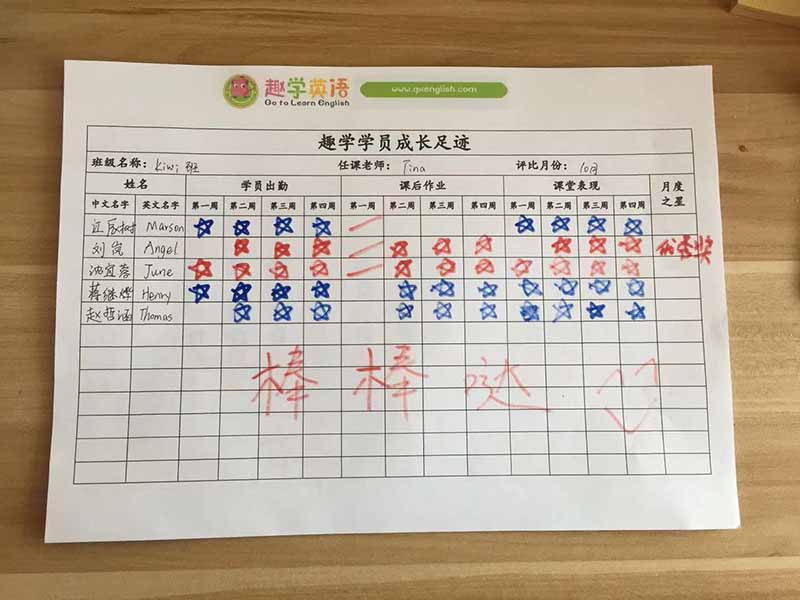 趣学英语
Go to Learn English
www.qxenglish.com
趣学学员成长足迹
班级名称: Kiwi 班 任课老师: Tina 评比月份: 10月
姓名 学员出勤 课后作业 课堂表现 月度之星
中文名字 英文名字 第一周 第二周 第三周 第四周 第一周 第二周 第三周 第四周 第一周 第二周 第三周 第四周
Marson
刘岚 Angel
June
蒋继烨 Henry
赵哲涵 Thomas
棒棒哒